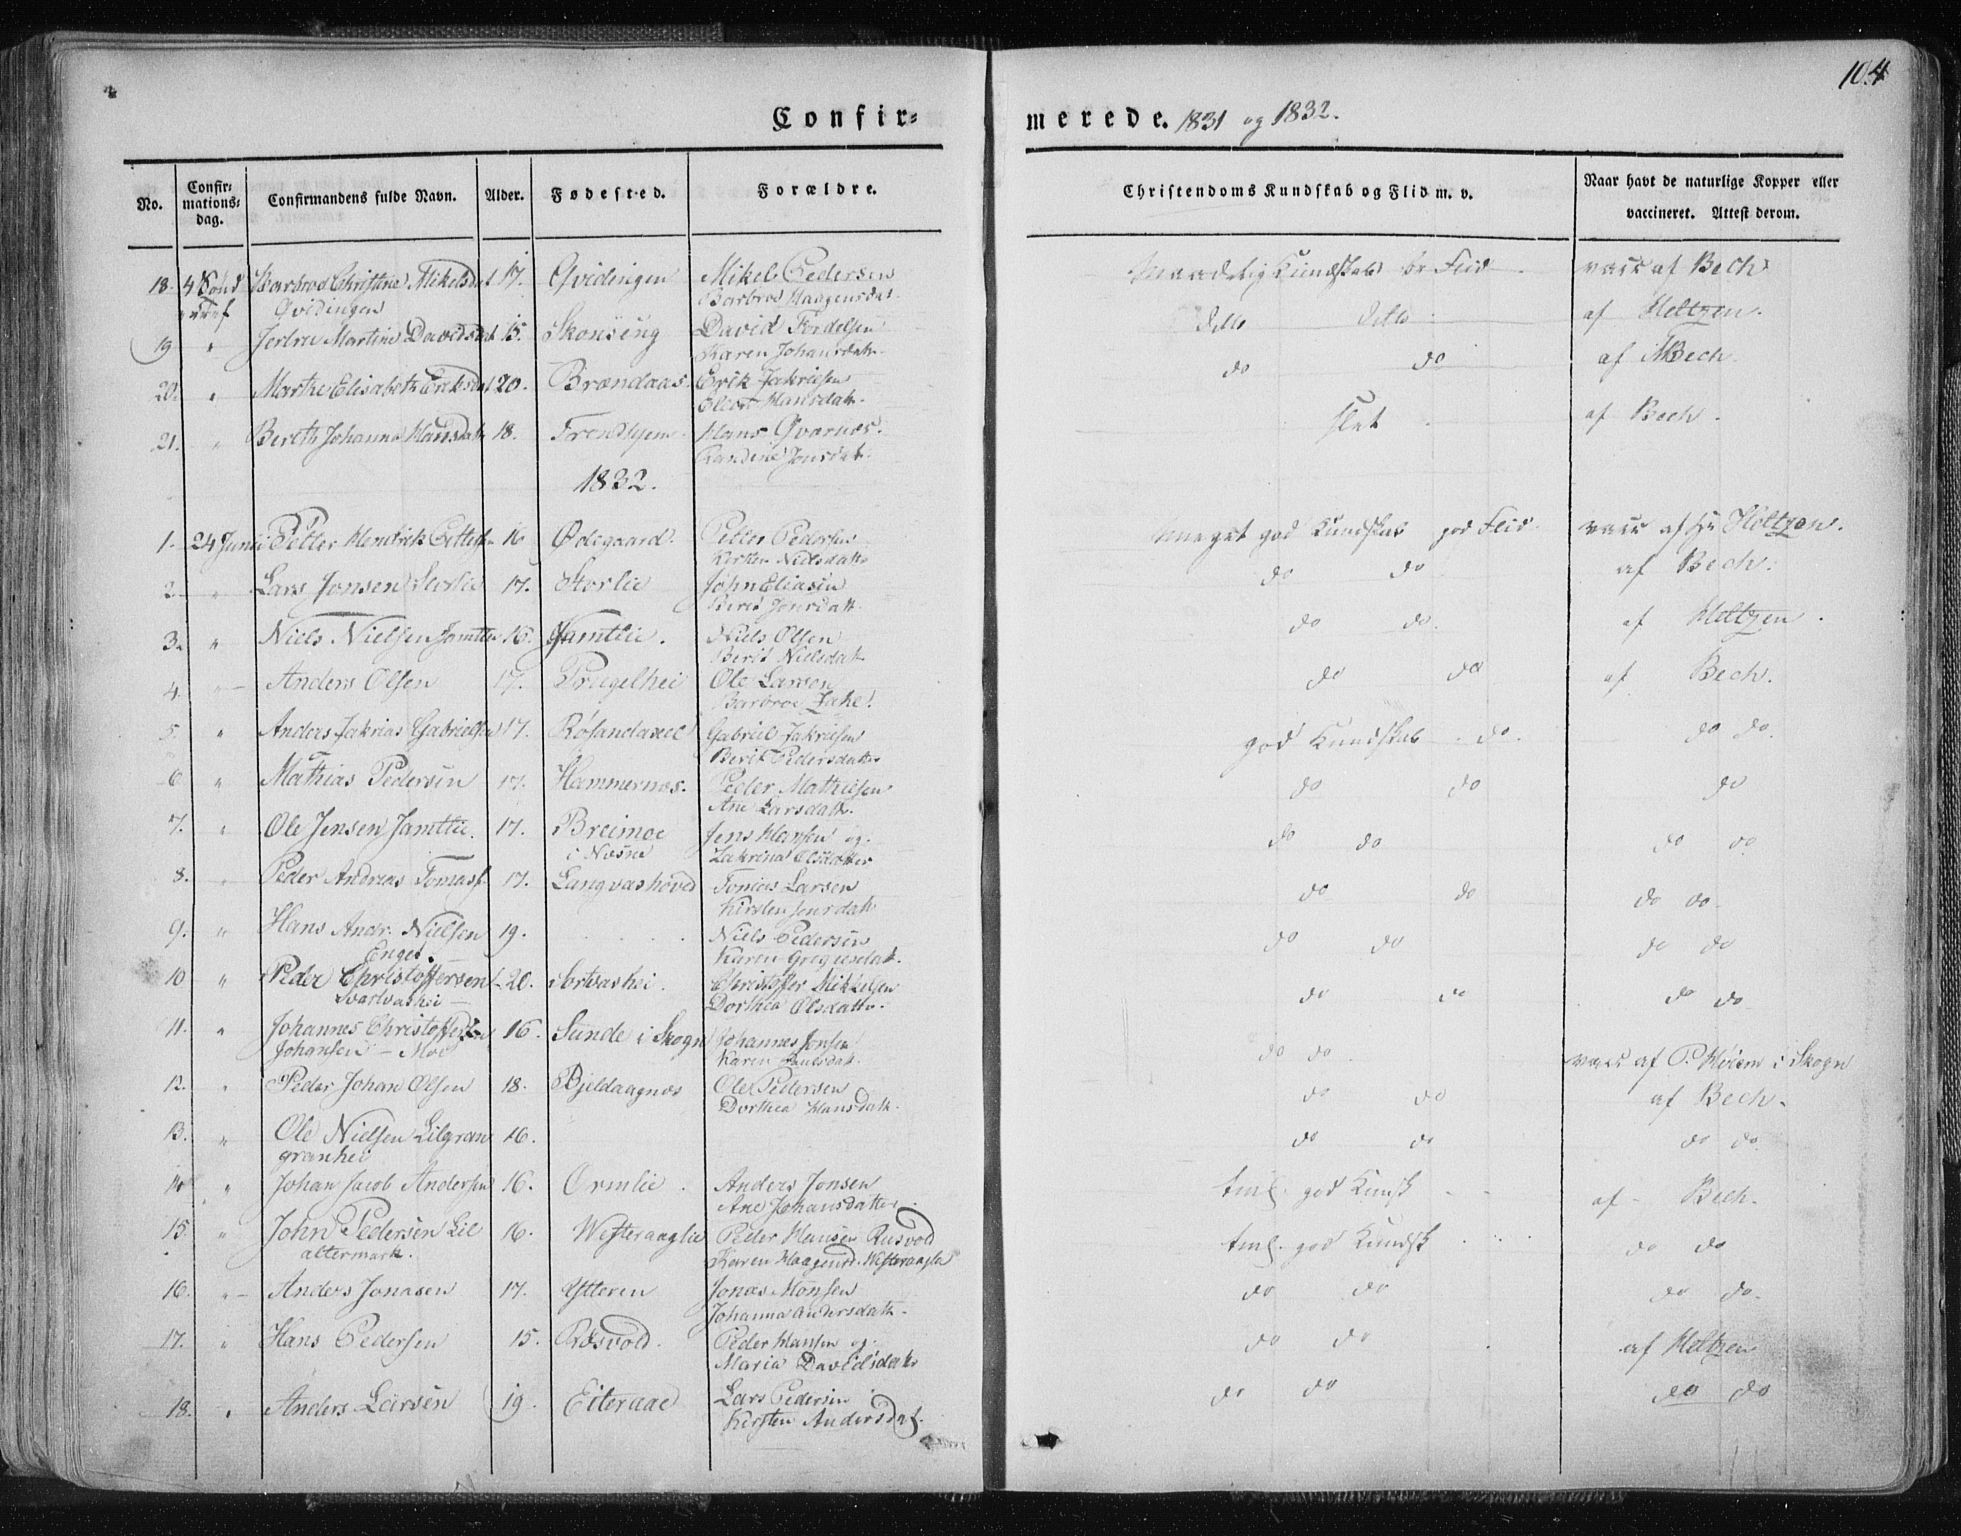 104
Confir-
merede. 1831 og 1832.
No.
Confir-
mations-
dag.
Confirmandens fulde Navn.
Alder.
Fødested.
Forældre.
Christendoms Kundskab og Flid m. v.
Naar havt de naturlige Kopper eller
vaccineret. Attest derom.
18. 4 Sønd Barbroe Christine Mikelsdat 17. Qvidingen Mikel Pedersen Maadelig Kundskab Flid vacc af Bech
Qvidingen Barbroe Haagensdat.
19 " Martine Davidsdat 15. Skonseng David ditto ditto af Heltzen.
Karen Johansdatt.
20. " Marthe Elisabeth Eriksdat 20. Brændaas Erik Zakriesen do do af Bech.
Hansdatt.
21. " Bereth Johanna Hansdatt 18. Hans Qvarnæs. slet af Bech.
Jonsdat.
1832.
1. 24 Junii Petter Hendrik 16 Ødegaard. Petter Pedersen Meget god Kundskab god Flid. vacc af Hr Heltzen.
Kirsten Nielsdatt
2 " Lars Jonsen Storlie 17. Storlie John Eliasen do do af Bech.
Berit Jonsdatt.
3. " Niels Nielsen Jamtlie 16. Jamtlie. Niels Olsen do do. af Heltzen.
Berit Nielsdatt
4. " Anders Olsen 17. Ole Larsen do do af Bech.
Barbroe Zake!
5. " Anders Zakrias Gabrielsen 17. Røsandaxel Gabriel Zakriesen god Kundskab do. do do.
Berit Pedersdatter
6 " Mathias Pedersen 17. Hammernæs. Peder Mathiesen do do do
Ane Larsdatt.
7. " Ole Jensen Jamtlie. 17. Breimoe Jens Hansen og. do do do do
i Næsne Zakrina Olsdatter
8. " Peder Andreas Tomass. 17. Langvashoved Tomas Larsen do do do do.
Kirsten Jonsdatt
9. " Hans Andr. Nielsen 19. Niels Pedersen do do do do
Enget. Karen Gregusdat.
10 " Peder Christoffersen 20. Sortvashei. Christoffer Mikkelsen do do do do
Svartvashei — Dorthea Olsdatter.
11. " Johannes Christoffer 16. Sunde i Skogn Johannes Jonsen do do vacc af P. Høiem i Skogn
Johansen — Moe Karen
12. " Peder Johan Olsen 18. Bjeldaagnæs Ole Pedersen do do af Bech.
Dorthea Hansdatt.
13. " Ole Nielsen Lilgran 16. do do do do.
granhei
14 " Johan Jacob Andersen 16. Ormlie. Anders Jonsen tml. god Kunsk af Bech.
Ane Johansdatter.
15. " John Pedersen Lil 16. Westeraaglie Peder Hansen Rusvold tml. god Kundsk do do
altermark. Karen Haagensd. Westeraagli
16. " Anders Jonasen 17. Ytteren Jonas Monsen do do do do.
Johanna Andersdatt.
17. " Hans Pedersen 15. Røsvold. Peder Hansen og. do do af Heltzen
Maria Davidsdatt
18. " Anders Larsen 19. Eiteraae Lars Pedersen do do do do
Kirsten Andersdat.